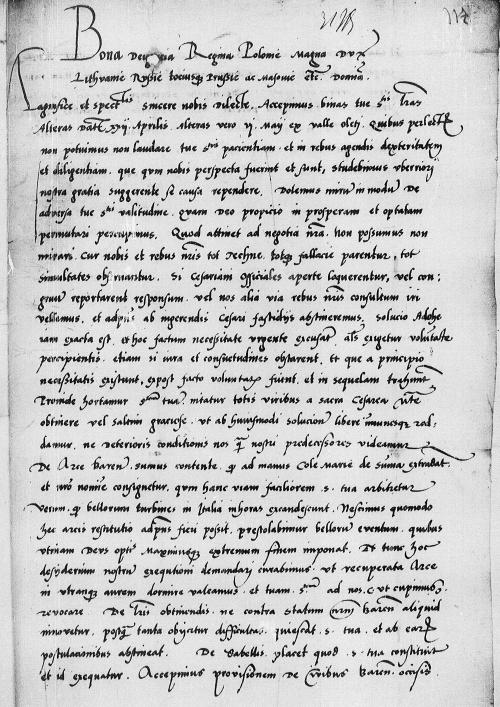 114
Bona Dei gra Regina Polonie Magna Dux
Lithuanie Russie tociusq Prussie ac Masovie etc. Domina
Magnifice et spect sincere nobis dilecte. Accepimus binas tue s. lras
Alteras Dat Aprilis Alteras vero vj Maij ex valle oleti. Quibus perlectis
non potuimus non laudare tue s. pacientiam et in rebus agendis dexteritatem
et diligentiam. que qum nobis perspecta fuerint et sunt, studebimus uberriori
nostra gratia suggerente se causa rependere. Dolemus mirum in modum de
adversa tue s. valitudine. quam Deo propicio in prosperam et optatam
permutari percupimus. Quod attinet ad negotia nra. Non possumus non
mirari. Cur nobis et rebus nris tot techne. totq fallacie parentur, tot
simultates obstruantur. Si Cesariani officiales aperte loquerentur, vel con:
gruum reportarent responsum. vel nos alia via rebus nris consultum iri
vellemus. et ab ingerendis Cesari fastidijs abstineremus. Solucio Adohe
ram exacta est. et hoc factum necessitate urgente excusat. als exigetur voluntate
percipientis. etiam si iura et consuetudines obstarent. Et que a principio
necessitatis existunt, expost facto voluntaria fiunt. et in sequelam trahuntur
Proinde hortamur s. tua. nitatur totis viribus a sacra Cesarea Mte
obtinere vel saltim graciose. ut ab huiusmodi solucione libere immunesq red:
damur. ne deterioris conditionis nos q nostri predecessores videamur
De Arce Baren. sumus contente. q ad manus Cole Marie de Suma extradat.
et nro nomine consignetur. qum hanc viam faciliorem s. tua arbitretur
Verum q bellorum turbines in Italia inhoras excandescunt. Nescimus quomodo
hec arcis restitutio adpns fieri possit. prestolabimur bellorum eventum. quibus
utinam Deus opt. Maximusq extremum finem imponat. Et tunc hoc
desyderium nostrum exequtioni demandari curabimus. ut recuperata Arce
in utranque aurem dormire valeamus. et tuam s. ad nos, ut cupimus,
revocare. De lris obtinendis. ne contra statum Baren. aliquid
innovetur. postq tanta obijcitur difficultas. quiescat s. tua. et ab ear
postulacionibus abstineat. De Gabellis. placet quod s. tua constituit
et id exequatur. Accepimus provisionem de Baren. occisis.